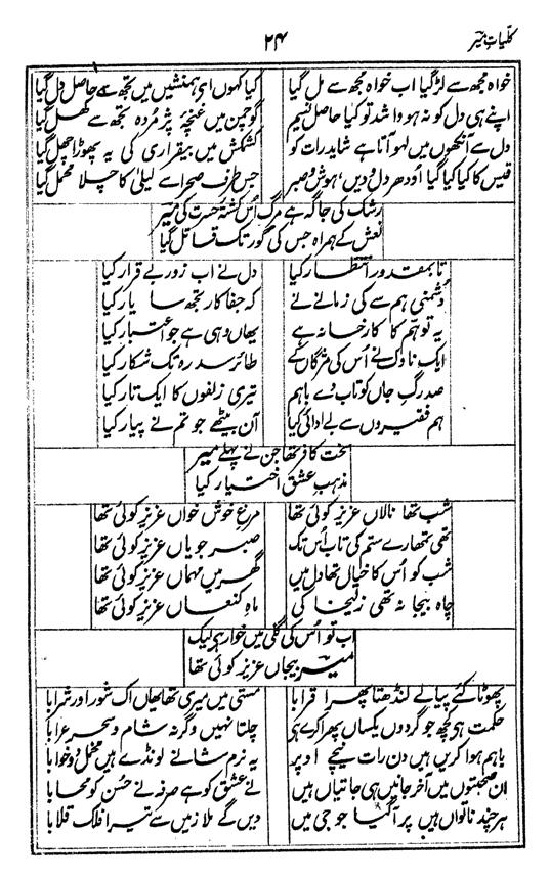 کلیاتِ میر
۲۴
خواہ مجھ سے لڑ گیا اب خواہ مجھ سے مل گیا کیا کہوں اے ہمنشیں میں تجھ سے حاصل دل گیا
اپنے ہی دل کو نہ ہو وا شد تو کیا حاصل نسیم گو چمن میں غنچۂ پژمردہ تجھ سے کھل گیا
دل سے آنکھوں میں لہو آتا ہے شاید رات کو کشمکش میں بیقراری کی یہ پھوڑا چھل گیا
قیس کا کیا کیا گیا اودھر دل و دیں، ہوش و صبر جس طرف صحرا سے لیلیٰ کا چلا محمل گیا
رشک کی جاگہ ہے مرگ اُس کشتۂ حسرت کی میر
نعش کے ہمراہ جس کی گور تک قاتل گیا
تا بمقدور انتظار کیا دل نے اب زور بے قرار کیا
دشمنی ہم سے کی زمانے نے کہ جفاکار تجھ سا یار کیا
یہ توہّم کا کارخانہ ہے یھاں وہی ہے جو اعتبار کیا
ایک ناوک نے اُس کی مژگاں کے طائرِ سدرہ تک شکار کیا
صد رگِ جاں کو تاب دے باہم تیری زلفوں کا ایک تار کیا
ہم فقیروں سے بے ادائی کیا آن بیٹھے جو تم نے پیار کیا
سخت کافر تھا جن نے پہلے میر
مذہبِ عشق اختیار کیا
شب تھا نالاں عزیز کوئی تھا مرغِ خوش خواں عزیز کوئی تھا
تھی تمھارے ستم کی تاب اُس تک صبر جو یاں عزیز کوئی تھا
شب کو اُس کا خیال تھا دل میں گھر میں مہماں عزیز کوئی تھا
چاہ بیجا نہ تھی زلیخا کی ماہِ کنعاں عزیز کوئی تھا
اب تو اُس کی گلی میں خوار ہے لیک
میر بیجاں عزیز کوئی تھا
پھوٹا کئے پیالے لنڈھتا پھرا قرابا مستی میں میری تھا یھاں اک شور اور شرابا
حکمت ہے کچھ جو گردوں یکساں پھرا کرے ہی چلتا نہیں وگرنہ شام و سحر عرابا
باہم ہوا کریں ہیں دن رات نیچے اوپر یہ نرم شانے لونڈے ہیں مخمل دو خوابا
ان صحبتوں میں آخر جانیں ہی جاتیاں ہیں نے عشق کو ہے صرفہ نے حُسن کو محابا
ہر چند ناتواں ہیں پر آ گیا جو جی میں دیں گے ملا زمیں سے تیرا فلک قلابا